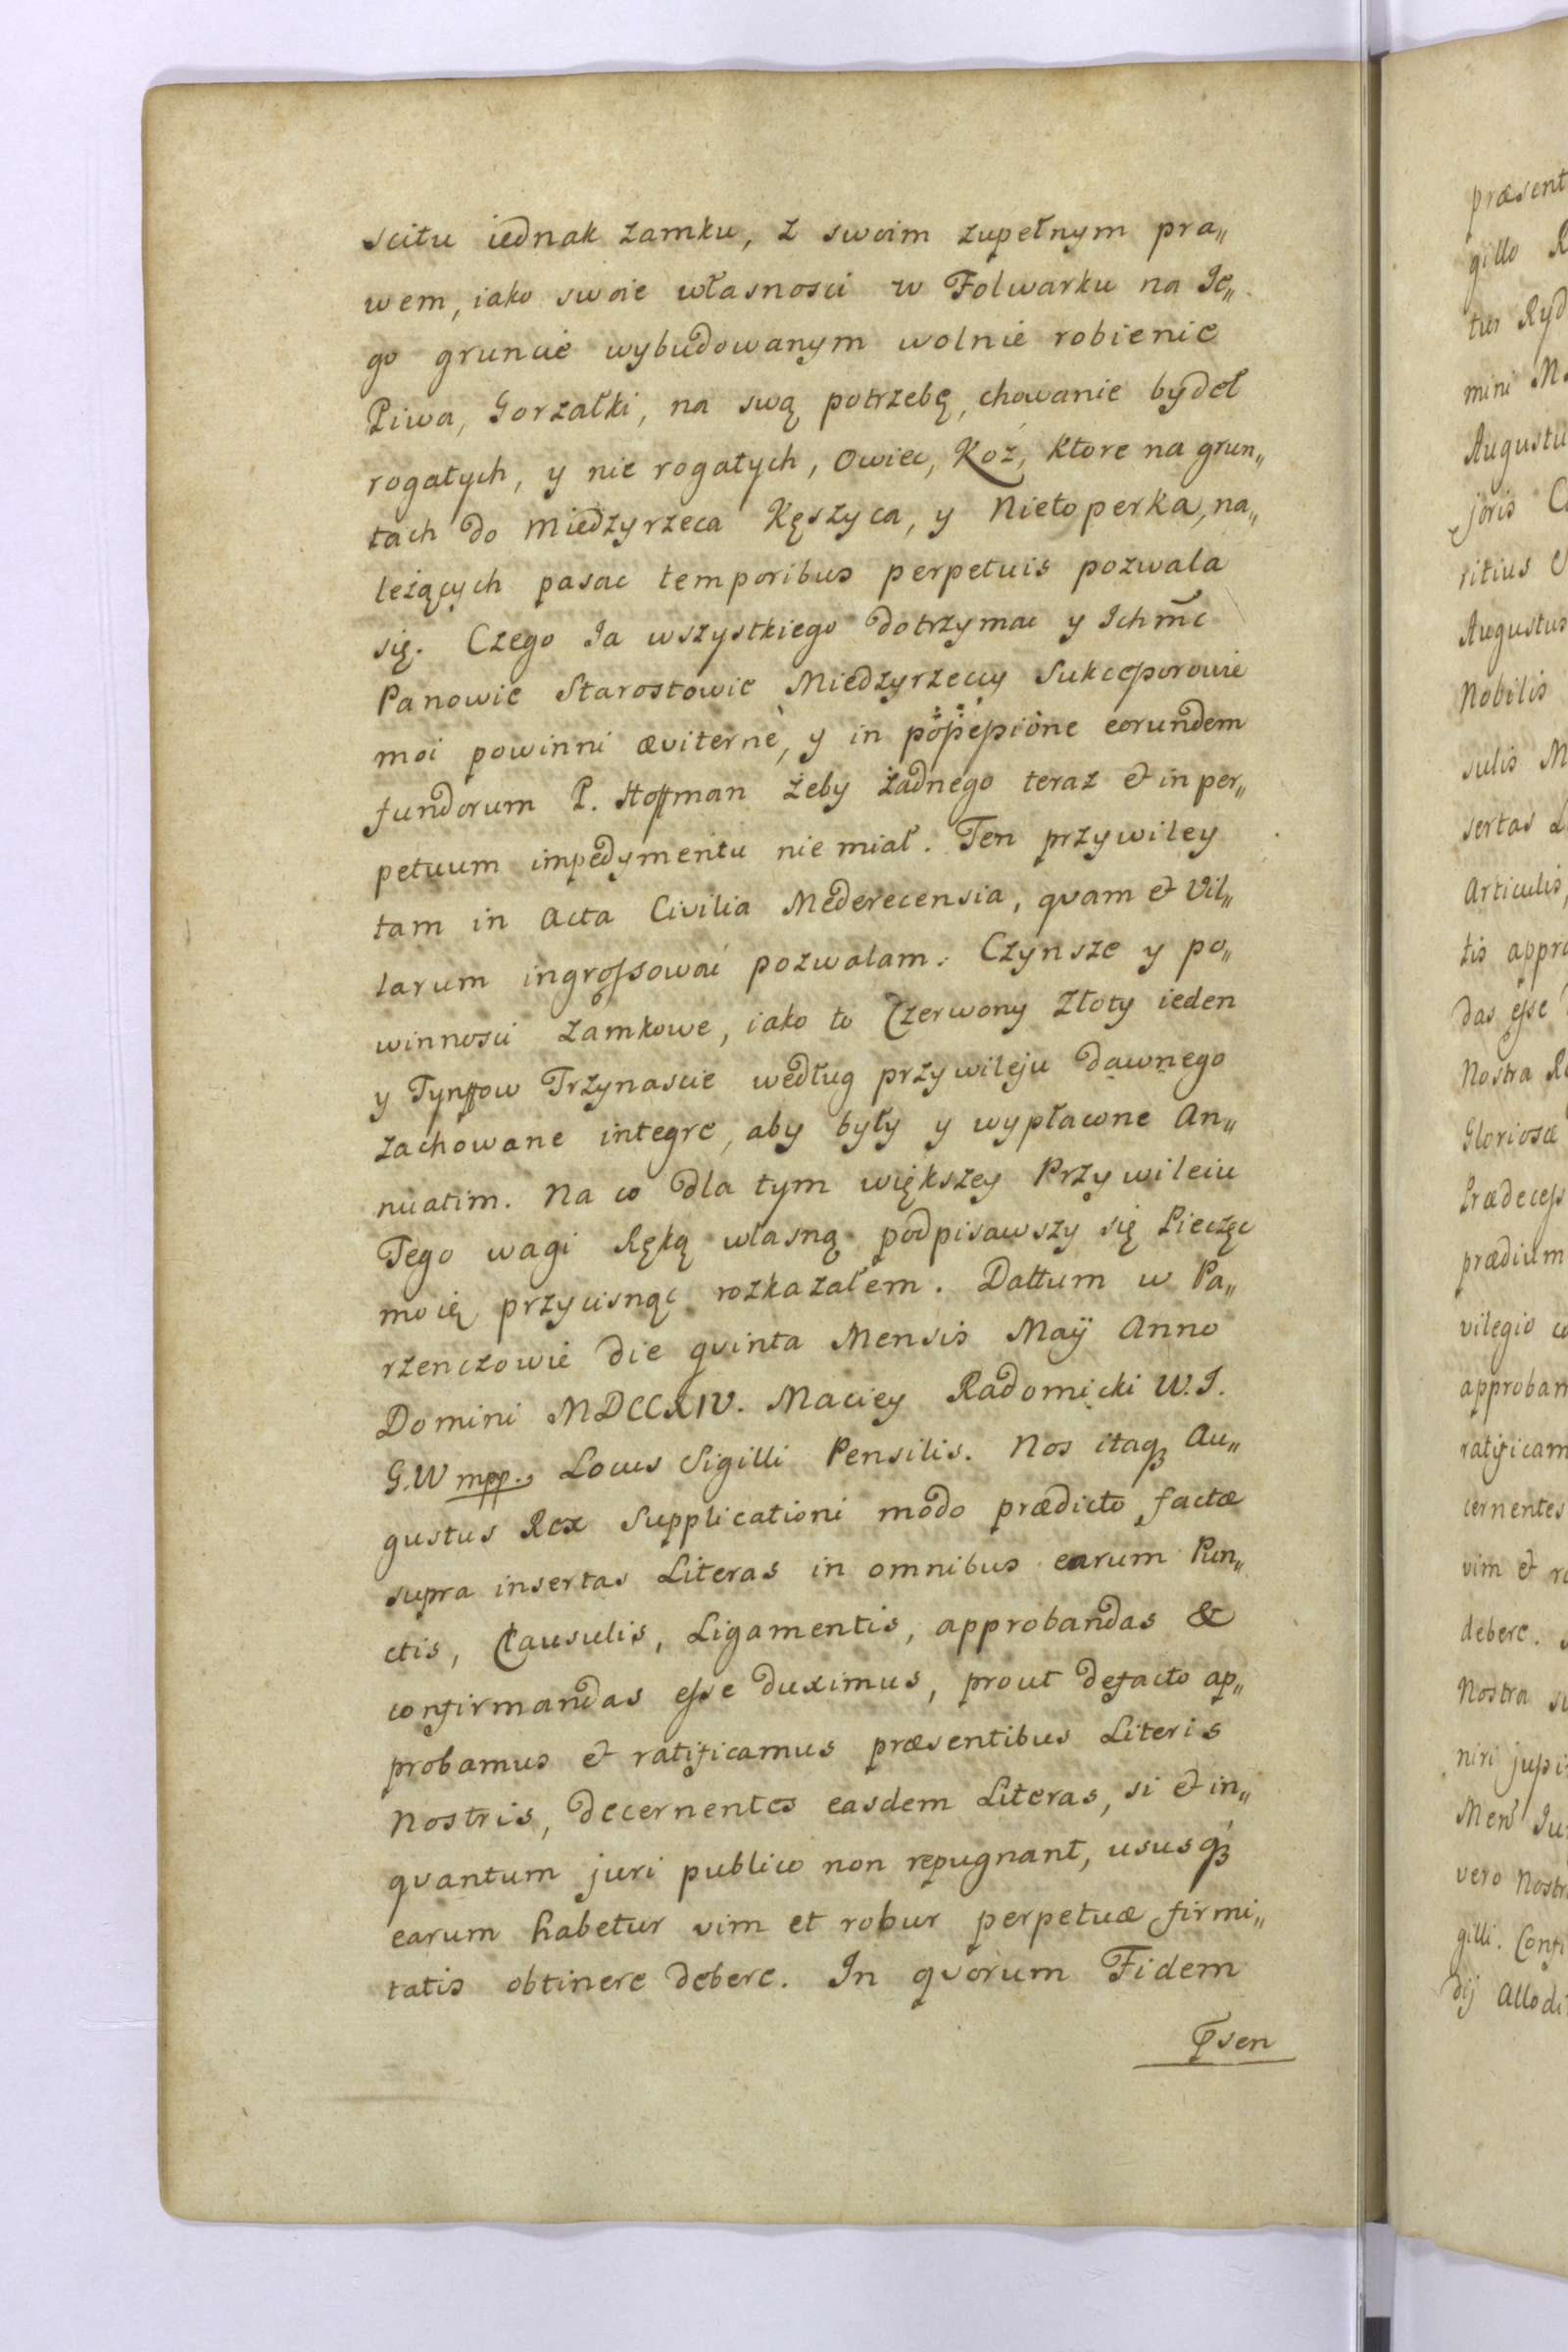 scitu iednak zamku, z swoim zupełnym pra„
wem, iako swoie własnosci w Folwarku na Ie„
go gruncie wybudowanym wolnie robienie
Piwa, Gorzałki, na swą potrzebę, chowanie bydeł
rogatych, y nie rogatych, Owiec, Koź, ktore na grun„
tach do Miedzyrzeca Kęszyca, y Nietoperka, na„
leżących pasac temporibus perpetuis pozwala
się. Czego Ia wszystkiego dotrzymac y Ichm̃c
Panowie Starostowie Miedzyrzeccy Sukcessorowie
moi powinni æviternè, y in possessione eorundem
fundorum P. Hoffman żeby żadnego teraz & in per„
petuum impedymentu nie miał. Ten przywiley
tam in Acta Civilia Mederecensia, qvam & Vil„
larum ingrossowac pozwalam. Czynsze y po„
winnosci zamkowe, iako to Czerwony złoty ieden
y Tynffow Trzynascie według przywileju dawnego
zachowane integre, aby były y wypłacone An„
nuatim. Na co dla tym większey Przywileiu
Tego wagi Ręką własną podpisawszy się Pieczęc
moię przycisnąc rozkazałem. Dattum w Pa„
rzenczowie die qvinta Mensis Maÿ Anno
Domini MDCCXIV. Maciey Radomicki W.I.
G.W mpp. Locus Sigilli Pensilis. Nos itaqꝫ Au„
gustus Rex Supplicationi modo prædicto factæ
supra insertas Literas in omnibus earum Pun„
ctis, Clausulis, Ligamentis, approbandas &
confirmandas esse duximus, prout defacto ap„
probamus & ratificamus præsentibus Literis
Nostris, decernentes easdem Literas, si & in„
qvantum juri publico non repugnant, ususqꝫ
earum habetur vim et robur perpetuæ firmi„
tatis obtinere debere. In qvorum Fidem
Præsen
præsent
gillo R
tus Ryd
mini M
Augustu
joris C
ritius
Augustus
Nobilis
sulis M
sertas L
Articulis,
tis appro
das esse
Nostra Re
Gloriosæ
Prædecess
prædium
vilegio co
approbam
ratificam
cernentes
vim & ro
debere.
Nostra su
niri jussi
Men Iu
vero Nostr
gilli. Confi
dij Allodi